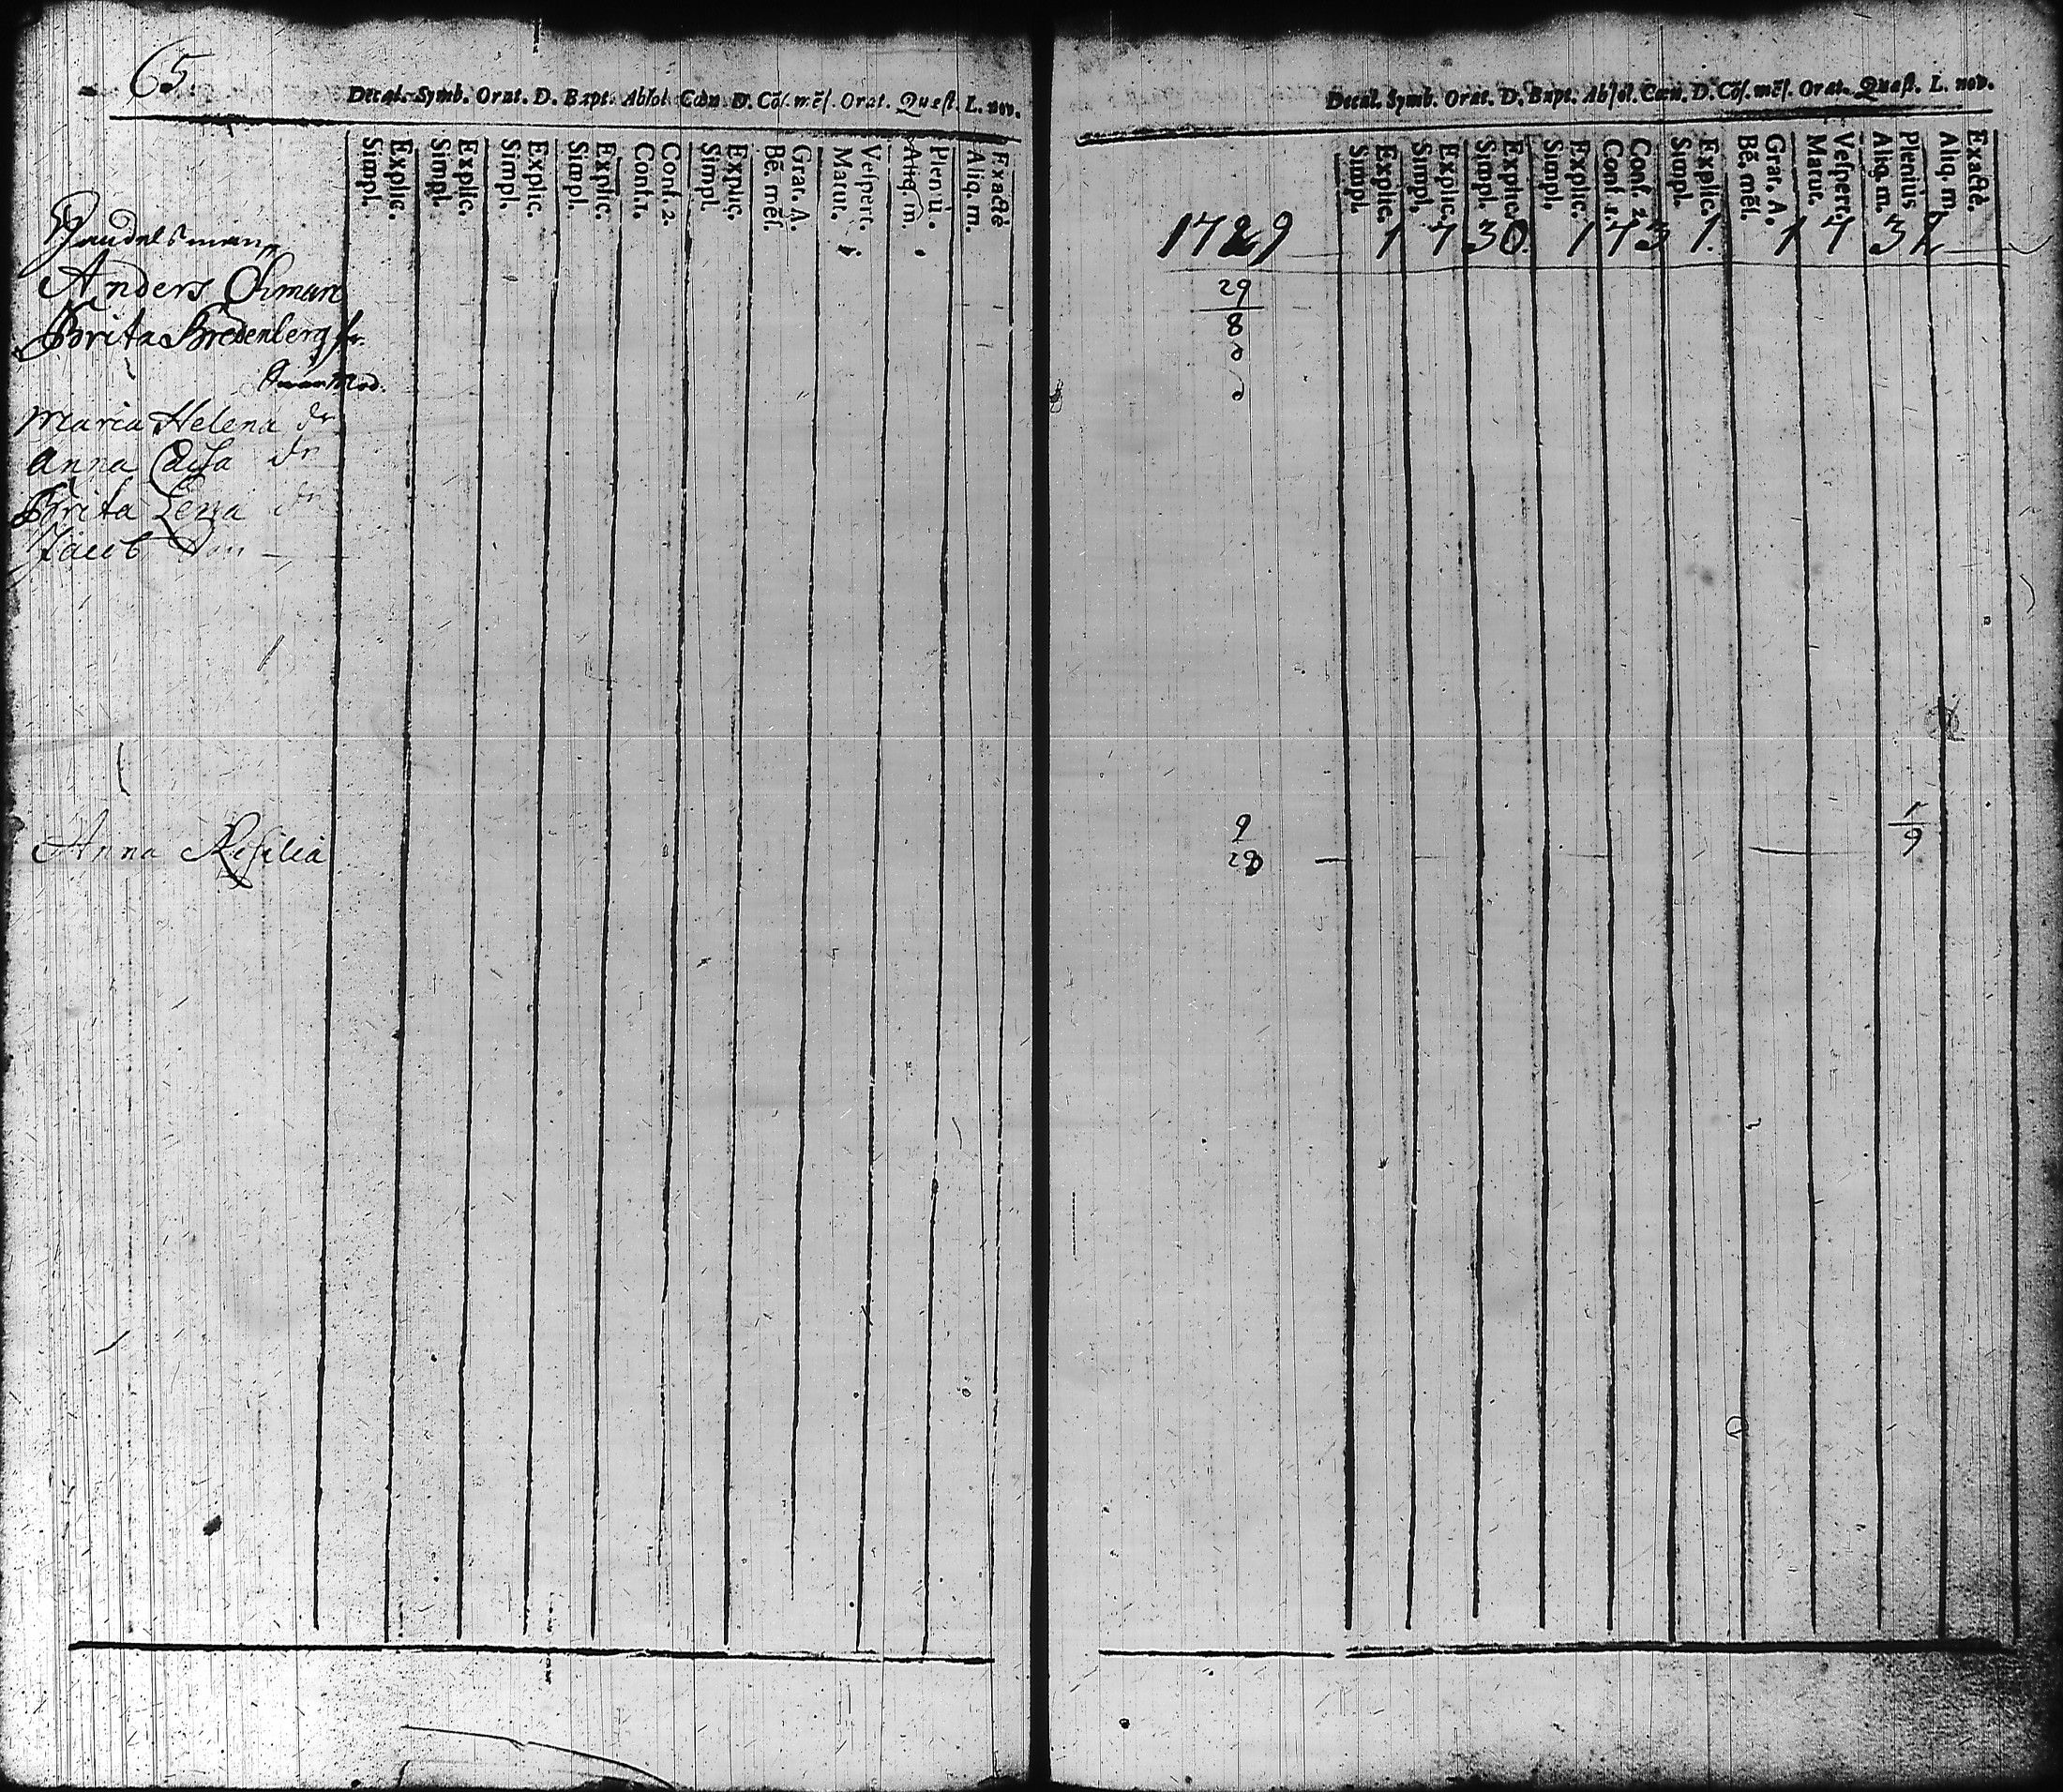 65.
Decal. Symb. Orat. D. Bapt. Absol. Cœn. D. Cõs. mẽs. Orat. Quæst. L. nov.
Simpl. Explic. Simpl. Explic. Simpl. Explic. Simpl. Explic. Conf. 1. Conf. 2. Simpl. Explic. Bẽ. mẽs. Grat. A. Matut. Vespert. Aliq. m. Pleniu. Aliq. m. Exactè
Handelsman
Anders Öhman
Brita Bredenberg hr.
Mod.
Maria Helena dr
Anna Cajsa dr
Brita Lena dr
Jacob Son
Anna
Decal. Symb. Orat. D. Bapt. Absol. Cœn. D. Cõs. mẽs. Orat. Quæst. L. nov.
Simpl. Explic. Simpl. Explic. Simpl. Explic. Simpl. Explic. Conf. 1. Conf. 2. Simpl. Explic. Bẽ. mẽs. Grat. A. Matut. Vespert. Aliq. m. Plenius Aliq. m. Exactè.
1729 1 7 30. 1 7 3 1. 1 7 3 2
29
8
1
9
9
28